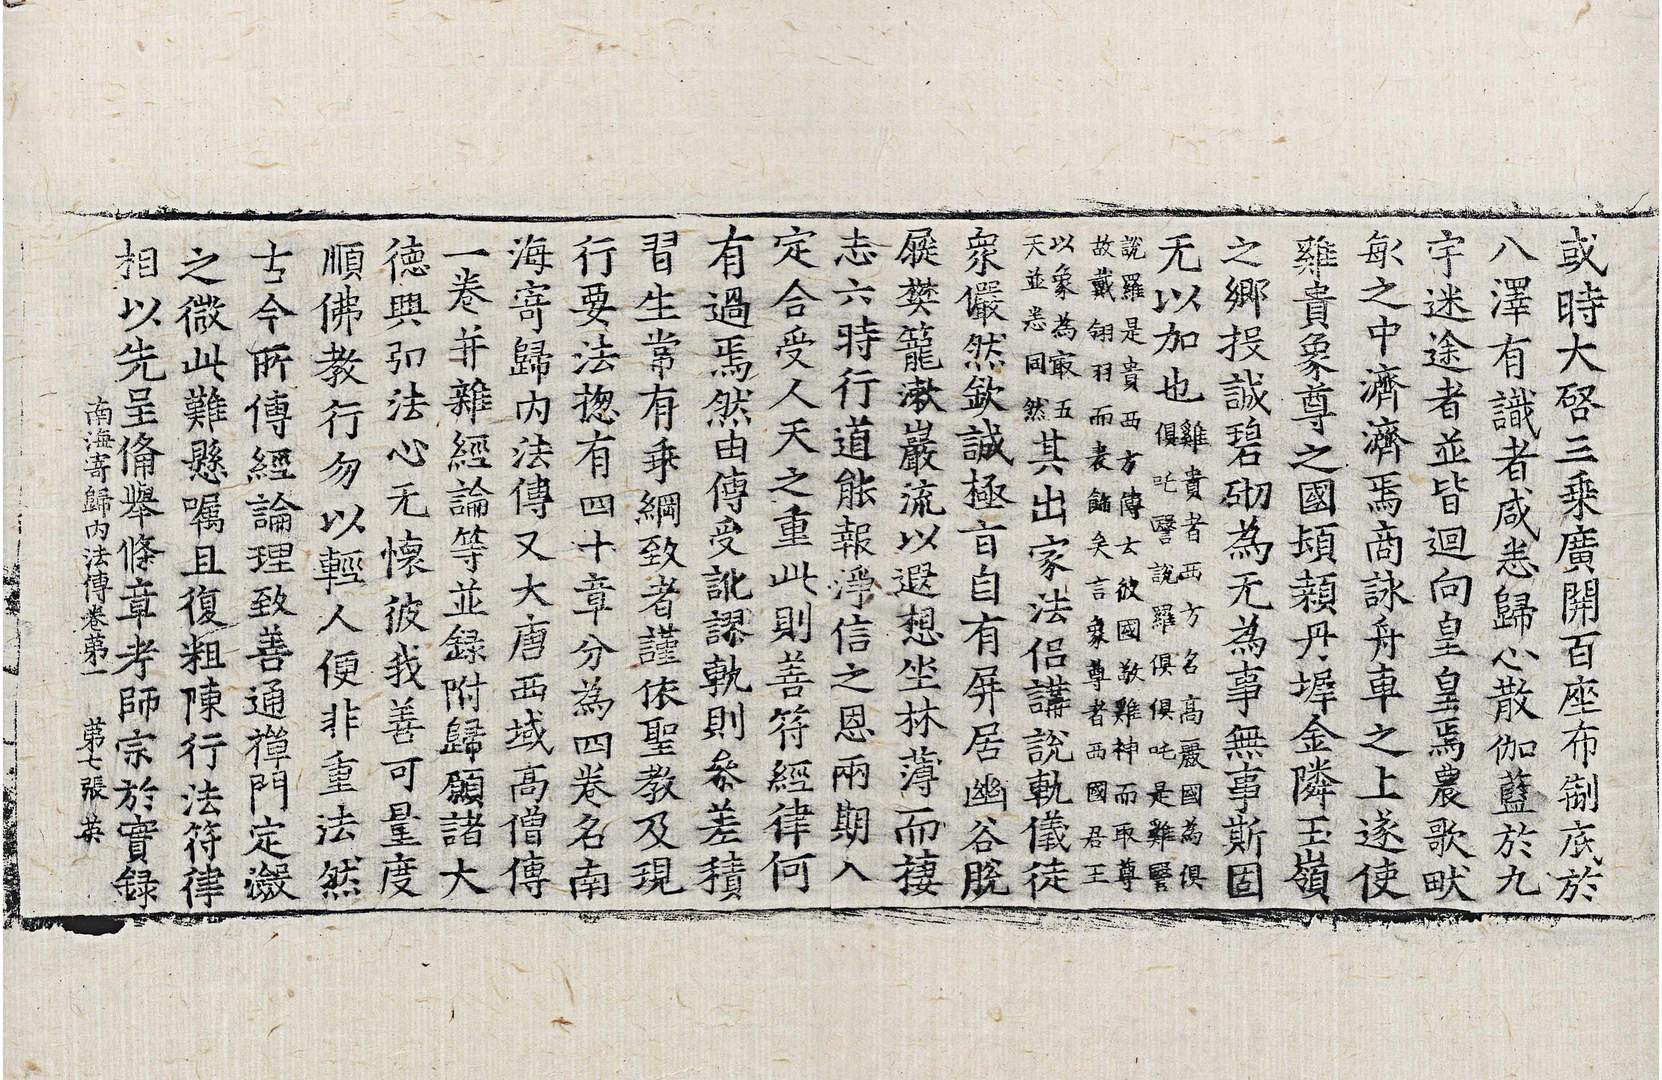 或時大啓三乗廣開百座布制底於
八澤有識者咸悉歸心散伽藍於九
宇迷途者並皆迴向皇皇焉農歌畎
畝之中濟濟焉商詠舟車之上遂使
雞貴象尊之國頓顙丹墀金隣玉嶺
之鄉投誠碧砌為无為事無事斯固
无以加也雞貴者西方名高麗國為俱
俱吒䃜說羅俱俱吒是雞䃜
說羅是貴西方傳云彼國敬雞神而取尊
故戴翎羽而表飾矣言象尊者西國君王
以象為㝡五
天並悉同然其出家法侶講說軌儀徒
衆儼然欽誠極旨自有屏居幽谷脫
屣樊籠漱巖流以遐想坐林薄而棲
志六時行道能報淨信之恩兩期入
定合受人天之重此則善符經律何
有過焉然由傳受訛謬軌則叅差積
習生常有乖綱致者謹依聖教及現
行要法揔有四十章分為四卷名南
海寄歸內法傳又大唐西域高僧傳
一卷并雜經論等並録附歸願諸大
德興弘法心无懷彼我善可量度
順佛教行勿以輕人便非重法然
古今所傳經論理致善通禪門定瀲
之微此難懸囑且復粗陳行法符律
相以先呈俻舉條章考師宗於實録
南海寄歸內法傳卷苐一　苐七張　英